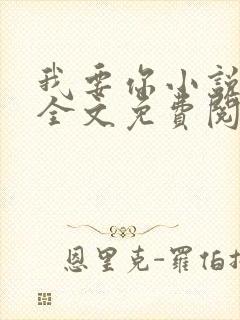 我要你小說
全文免費閱
恩里克-羅伯